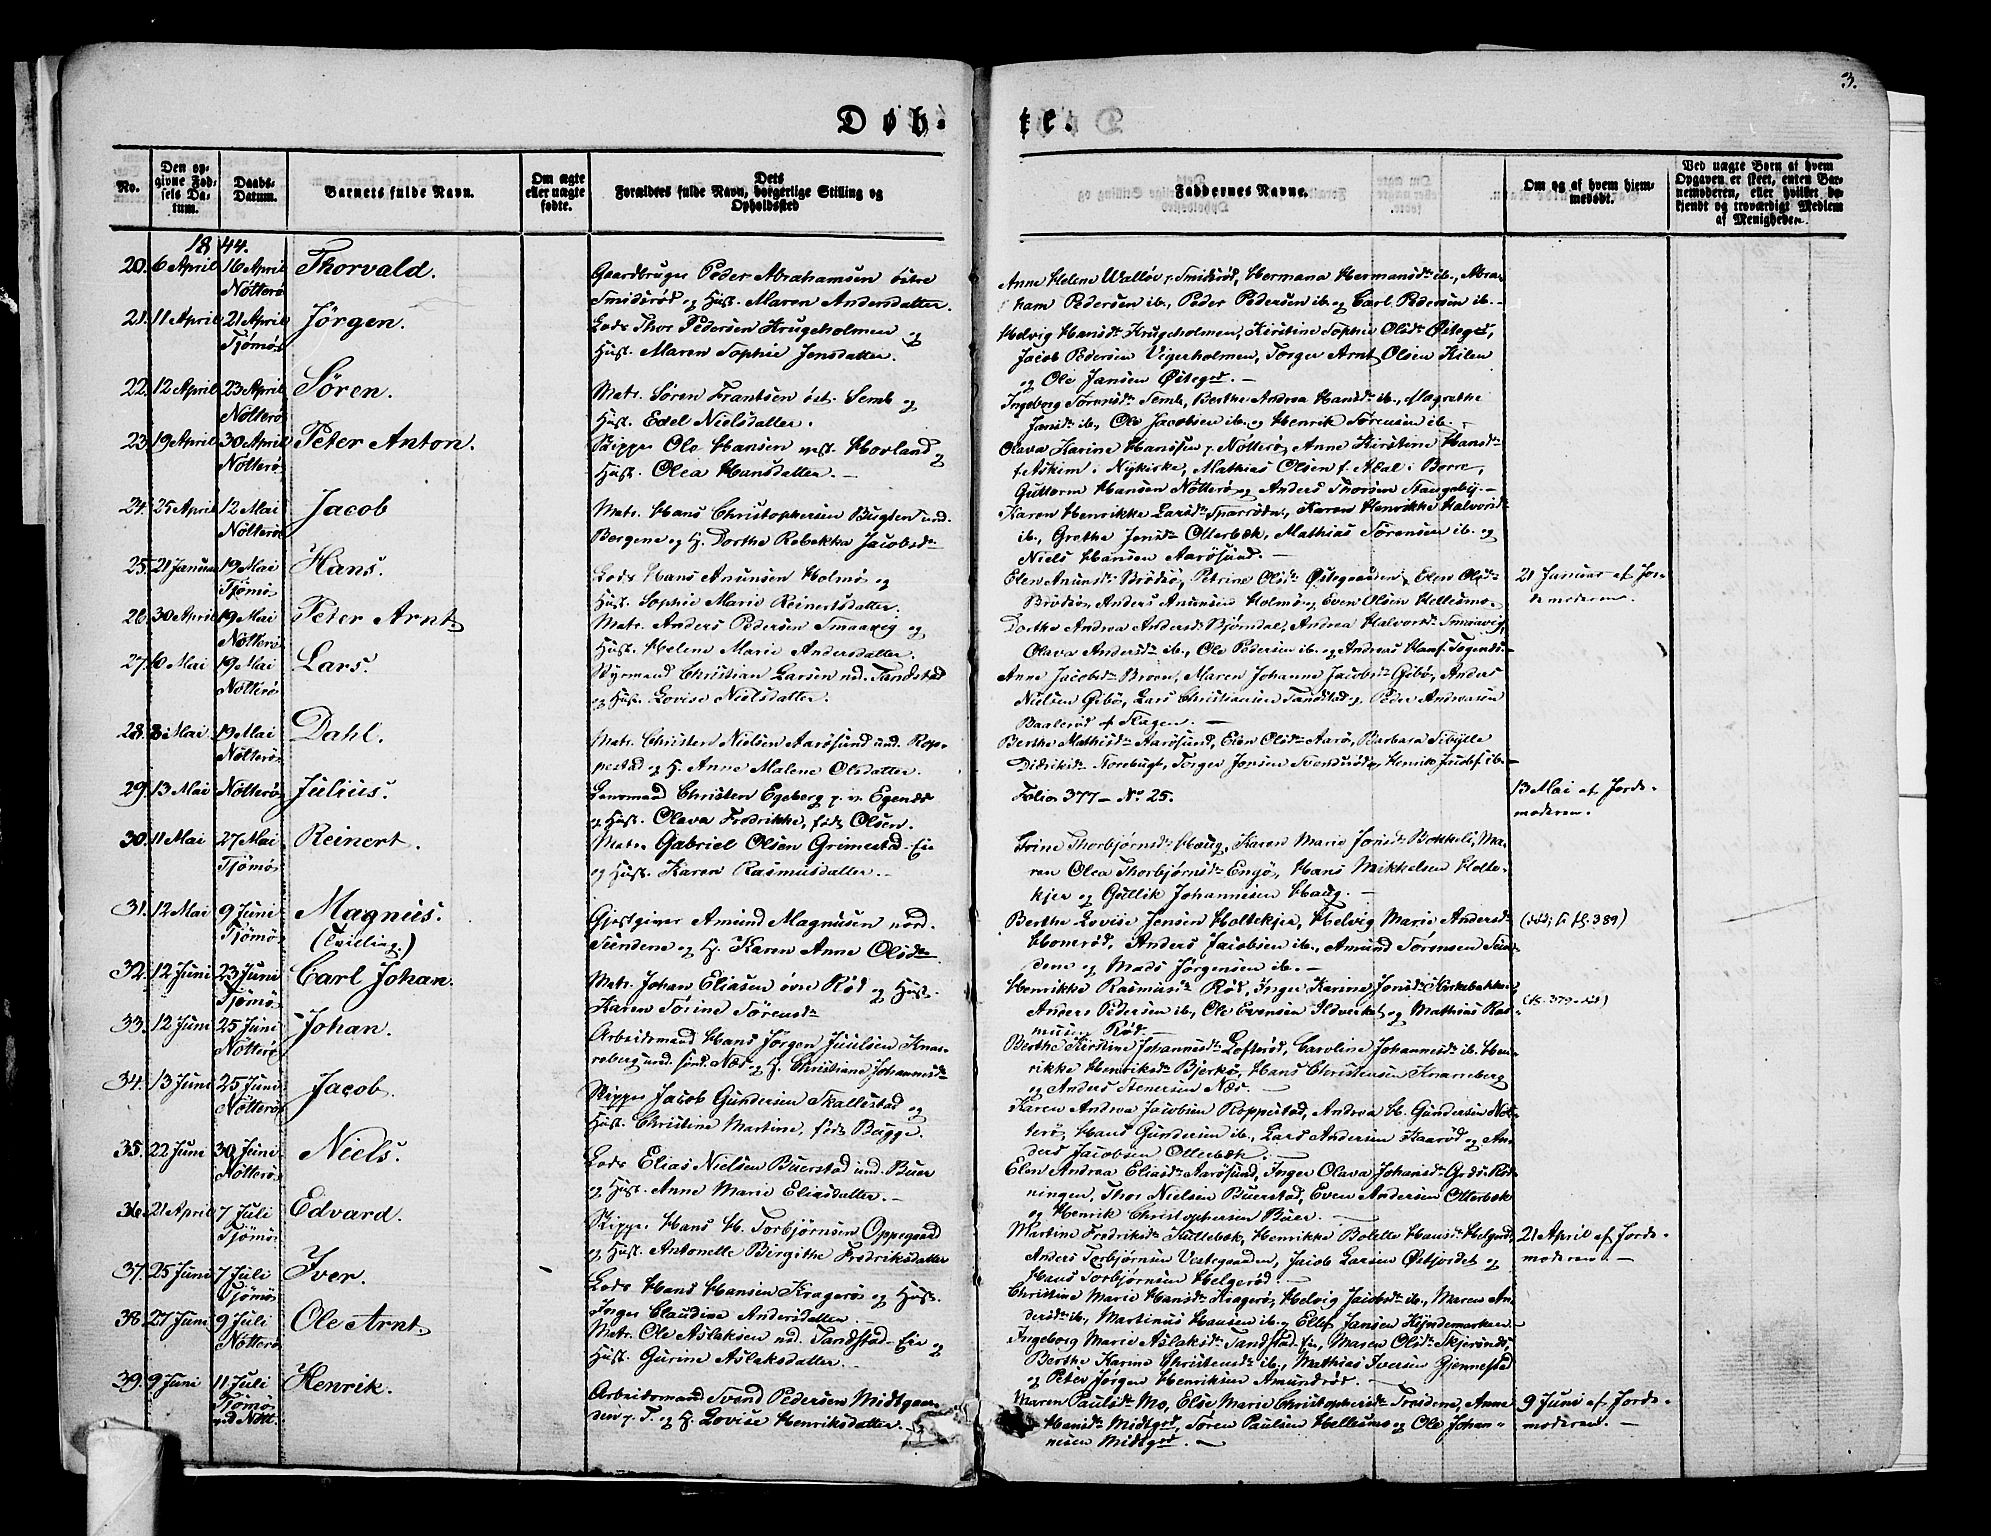 3.
Døb-
te.
No.
Den op-
givne Fød-
sels Da-
tum.
Daabs-
Datum.
Barnets fulde Navn.
Om ægte
eller uægte
fødte.
Dets
Forældres fulde Navn, borgerlige Stilling og
Opholdssted
Faddernes Navne.
Om og af hvem hjem-
medøbt.
Ved uægte Børn af hvem
Opgaven er skeet, enten Bar-
nemoderen, eller hvilket be-
kjendt og troværdigt Medlem
af Menigheden.
1844.
20. 6 April 16 April Nötterö Thorvald.
Gaardbruger Peder Abrahamsen östre
Smidsröd og Hust. Maren Andersdatter.
Anne Helene Wallöe, Smidsröd, Hermana Hermansdr ib., Abra-
ham Pedersen ib., Peder Pedersen ib. og Carl Pedersen ib.
21. 11 April 21 April Tjömö Jörgen.
Lods Thor Pedersen Krugeholmen og
Hust. Maren Sophie Jensdatter.
Helvig Hansdr Krugeholmen, Kirstine Sophie Olsdr Østegrd,
Jacob Pedersen Vigerholmen, Torger Arnt Olsen Kilen
og Ole Jansen Østegrd.
22. 12 April 23 April Nötterö Sören.
Matr. Sören Frantsen öst. Semb og
Hust. Edel Nielsdatter.
Ingeborg Sörensdr Semb, Berthe Andrea Hansdr ib., Magrethe
Jansdr ib., Ole Jacobsen ib. og Henrik Sörensen ib.
23. 19 April 30 April Nötterö Peter Anton.
Skipper Ole Hansen vest. Hovland og
Hust. Olea Hansdatter.
Olava Karine Hanssen, Nötterö, Anne Kirstine Hansdr
f. Askim i Nykirke, Mathias Olsen f. Adal i Borre,
Guttorm Hansen Nötterö og Anders Thorsen Stangeby.
24. 25 April 12 Mai Nötterö Jacob
Matr. Hans Christophersen Bugten und.
Bergene og H. Dorthe Rebekka Jacobsdr
Karen Henrikke Larsdr Sparröden, Karen Henrikke Halvorsdr
ib., Grethe Jensdr Otterbæk, Mathias Sörensen ib. og
Niels Hansen Aarösund.
25. 21 Januar 19 Mai Tjömö Hans.
Lods Hans Anunsen Holmö og
Hust. Sophie Marie Reinertsdatter.
Elen Anunsdr Brödsö, Petrine Olsdr Østegaarden, Elen Olsdr
Brödsö, Anders Anunsen Holmö og Even Olsen Hellesmo.
21 Januar af Jor-
demoderen.
26. 30 April 19 Mai Nötterö Peter Arnt.
Matr. Anders Pedersen Smaavig og
Hust. Helene Marie Andersdatter.
Dorthe Andrea Andersdr Bjørndal, Andrea Halvorsdr Smaavig,
Olava Andersdr ib., Ole Pedersen ib. og Andreas Hansf.
27. 6 Mai 19 Mai Nötterö Lars.
Styrmand Christian Larsen nd. Sandstad
og Hust. Lovise Nielsdatter.
Anne Jacobsdr Broen, Maren Johanne Jacobsdr Gibö, Anders
Nielsen Gibö, Lars Christiansen Sandstad og Peder Andersen
Baalerød f. Skagen.
28. 8 Mai 19 Mai Nötterö Dahl.
Matr. Christen Nielsen Aarösund und. Rop-
pestad og H. Anne Malene Olsdatter.
Berthe Mathisdr Aarösund, Elen Olsdr Aarö, Barbara Sibylle
Didriksdr Torebugt, Torger Jonsen Svendsröd, Henrik Jacobs. ib.
29. 13 Mai Nötterö Julius.
Lensmand Christen Egeberg p. v. Egenæs
og Hust. Olava Fredrikke, födt Olsen.
Folio 377 - No 25.
13 Mai af Jorde-
moderen.
30. 11 Mai 27 Mai Tjömö Reinert.
Matr. Gabriel Olsen Grimestad-Eie
og Hust. Karen Rasmusdatter.
Trine Thorbjørnsdr Haug, Karen Marie Jonsdr Bekkeli, Ma-
ren Olea Thorbjørnsdr Engö, Hans Mikkelsen Holte-
kjer og Gullik Johannisen Haug.
31. 12 Mai 9 Juni Tjömö Magnus.
(Tvilling.)
Gjestgiver Amund Magnusen nord.
Sundene og H. Karen Anne Olsdr
Berthe Lovise Jensen Holtekjer, Helvig Marie Andersdr
Homröd, Anders Jacobsen ib., Amund Sörensen Sun-
dene og Mads Jörgensen ib.
32. 12 Juni 23 Juni Tjömö Carl Johan.
Matr. Johan Eliasen övre Röd og Hust.
Karen Sörine Sörensdr
Henrikke Rasmusdr Röd, Inger Karine Jonsdr Kirkebakken,
Anders Pedersen ib., Ole Evensen Ildverket og Mathias Ras-
musen Röd.
33. 12 Juni 25 Juni Nötterö Johan.
Arbeidsmand Hans Jörgen Juulsen Knar-
reberg und. sönd. Næs og H. Christiane Johannesdr
Berthe Kirstine Johannesdr Lofteröd, Caroline Johannesdr ib. Hen-
rikke Henriksdr Bjerkö, Hans Christensen Knarreberg
og Anders Stenersen Næs.
34. 13 Juni 25 Juni Nötterö Jacob.
Skipper Jacob Gundersen Skallestad og
Hust. Christine Martine, föd Bugge.
Karen Andrea Jacobsen Roppestad, Andrea H. Gundersen Nöt-
terö, Hans Gundersen ib., Lars Andersen Kaaröd og An-
ders Jacobsen Otterbek.
35. 22 Juni 30 Juni Nötterö Niels.
Lods Elias Nielsen Buerstad und. Buer
og Hust. Anne Marie Eliasdatter.
Elen Andrea Eliasdr Aarösund, Inger Olava Johansdr
ningen, Thor Nielsen Buerstad, Even Andersen Otterbek
og Henrik Christophersen Buer.
36. 21 April 7 Juli Tjömö Edvard.
Skipper Hans H. Torbjörnsen Oppegaard
og Hust. Antonette Birgithe Fredriksdatter
Martine Fredriksdr Kullebek, Henrikke Bolette Hansdr
Anders Torbjörnsen Vestegaarden, Jacob Larsen Østjordet og
Hans Torbjörnsen Helgeröd.
21 April af Jorde-
moderen.
37. 25 Juni 7 Juli Tjömö Iver.
Lods Hans Hansen Kragerö og Hust.
Inger Claudine Andersdatter.
Christine Marie Hansdr Kragerö, Helvig Jacobsdr ib., Maren An-
dersdr ib., Martinus Hansen ib. og Ellef Jansen Hyndemarken.
38. 27 Juni 9 Juli Nötterö Ole Arnt.
Matr. Ole Aslaksen nd. Sandstad-Eie og
Hust. Gurine Aslaksdatter.
Ingeborg Marie Aslaksdr Sandstad-Eie, Maren Olsdr
Berthe Karine Christensdr ib., Mathias Iversen Gjennestad
og Peter Jörgen Henriksen Amundröd.
39. 9 Juni 11 Juli Tjömö ved Nött. Henrik.
Arbeidsmand Svend Pedersen Midtgaar-
den p. T. og H. Lovise Henriksdatter.
Maren Paulsdr Mo, Else Marie Christophersdr Trosdene, Anne
Hansdr Midtgrd, Sören Paulsen Hellesmo og Ole Johan-
nesen Midtgrd.
9 Juni af Jorde-
moderen.